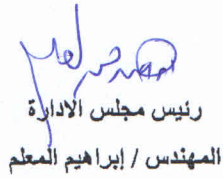 رئيس مجلس الادارة
المهندس / إبراهيم المعلم